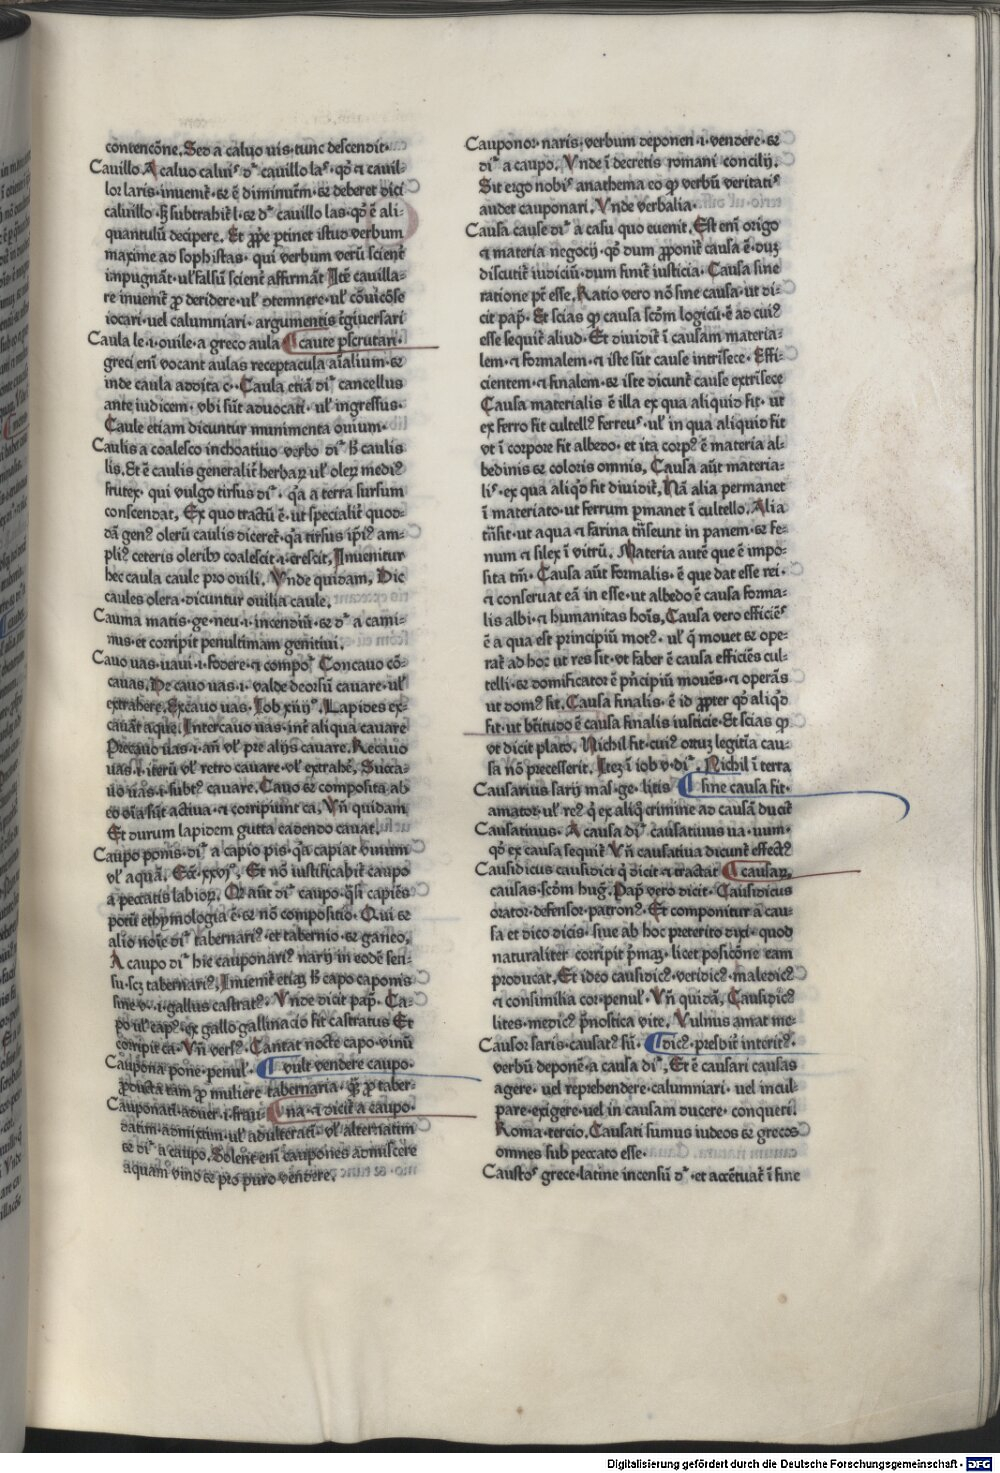 contencōne. Sed a caluo uis tunc descendit.
Cauillo. A caluo caluiˢ dʳ cauillo laˢ · qd̄ ⁊ cauil-
lor laris inuenit᷑ · et ē diminutiū · et deberet dici
caluillo · sꝫ subtrahit᷑ l · et dʳ cauillo las · qd̄ ē ali-
quantulū decipere. Et ꝓprie ꝑtinet istud verbum
maxime ad sophistas · qui verbum verū scient᷑
inpugnāt · ul̓ falsū scient᷑ affirmāt Itē cauilla-
re inuenit᷑ ꝓ deridere · ul̓ ꝯtemnere · ul̓ cōuiciose
iocari · uel calumniari · argumentis t᷑giuersari
Caula le · i · ouile · a greco aula ¶ caute ꝑscrutari.
greci enī vocant aulas receptacula aīalium · et
inde caula addita c · Caula etiā diʳ cancellus
ante iudicem · vbi sūt aduocati · ul̓ ingressus.
Caule etiam dicuntur munimenta ouium.
Caulis a coalesco inchoatiuo verbo diʳ hͦ caulis
lis. Et ē caulis generalit᷑ herbaꝝ ul̓ oleꝝ mediꝰ
frutex · qui vulgo tirsus diʳ · qa a terra sursum
conscendat. Ex quo tractū ē · ut specialit᷑ quod-
dā genꝰ olerū caulis diceret᷑ · qa tirsus ip̄iꝰ am-
pliꝰ ceteris oleribꝫ coalescit · i · crescit. Inuenitur
hec caula caule pro ouili. Vnde quidam. Dic
caules olera · dicuntur ouilia caule.
Cauma matis · ge · neu · i · incendiū · et dʳ a cami-
nus · et corripit penultimam genitiui.
Cauo uas · uaui · i · fodere · ⁊ compoʳ Concauo cō-
cauas. De cauo uas · i · valde deorsū cauare · ul̓
extrahere. Excauo uas. Iob xiiijᵒ. Lapides ex-
cauāt aque. Intercauo uas · int᷑ aliqua cauare
Precauo uas · i · añ vl̓ pre alijs cauare. Recauo
uas · i · iterū vl̓ retro cauare · vl̓ extrahe᷑. Succa-
uo uas · i · subt᷑ cauare. Cauo et composita ab
eo oīa sūt actiua · ⁊ corripiunt ca. Vñ quidam
Et durum lapidem gutta cadendo cauat.
Caupo ponis · diʳ a capio pis · qa capiat vinum
vl̓ aquā. Ecc̄. xxvjᵒ. Et nō iustificabit᷑ caupo
a peccatis labioꝝ. Or̄ aūt diʳ caupo · q̄si capiēs
potū ethymologia ē · et nō compositio. Qui et
alio noīe diʳ tabernariꝰ · et tabernio · et ganeo.
A caupo diʳ hic cauponariꝰ narij in eodē sen-
su · scꝫ tabernariꝰ. Inuenit᷑ etiaꝫ hͦ capo caponis
sine v · i · gallus castratꝰ. Vnde dicit pap̄. Ca-
po ul̓ capꝰ · ex gallo gallinacio fit castratus Et
corripit ca. Vñ versꝰ. Cantat nocte capo · vinū
Caupona pone · penul̓. ¶ vult vendere caupo.
ꝓducta tam ꝓ muliere tabernaria · qͣꝫ ꝓ taber-
Cauponati · aduer · i · frau- ¶ na · ⁊ dicit᷑ a caupo.
datim · admixtim · ul̓ adulterati · vl̓ alternatim
et diʳ a caupo. Solent enī caupones admiscere
aquam vino et pro puro vendere.
Cauponor naris · verbum deponen · i · vendere · et
diʳ a caupo. Vnde ī decretis romani concilij.
Sit ergo nobiˢ anathema eo ꝙ verbū veritatiˢ
audet cauponari. Vnde verbalia.
Causa cause diʳ a casu quo euenit. Est enī origo
⁊ materia negocij · qd̄ dum ꝓponit᷑ causa ē · duꝫ
discutit᷑ iudiciū · dum finit᷑ iusticia. Causa sine
ratione pt̄ esse. Ratio vero nō sine causa · ut di-
cit pap̄. Et scias ꝙ causa scd̄m logicū · ē ad cuiꝰ
esse sequit᷑ aliud. Et diuidit᷑ ī causam materia-
lem · ⁊ formalem · ⁊ iste sūt cause intrīsece. Effi-
cientem · ⁊ finalem · et iste dicunt᷑ cause extrīsece
Causa materialis ē illa ex qua aliquid fit · ut
ex ferro fit cultellꝰ ferreuˢ · ul̓ in qua aliquid fit
vt ī corpore fit albedo · et ita corpꝰ ē materia al-
bedinis et coloris omnis. Causa aūt materia-
liˢ · ex qua aliqd̄ fit diuidit᷑. Nā alia permanet
ī materiato · ut ferrum ꝑmanet ī cultello. Alia
trāsit · ut aqua ⁊ farina trāseunt in panem · et fe-
num ⁊ silex ī vitrū. Materia autē que ē impo-
sita tm̄. Causa aūt formalis · ē que dat esse rei ·
⁊ conseruat eā in esse · ut albedo ē causa forma-
lis albi · ⁊ humanitas hoīs. Causa vero efficiēˢ
ē a qua est principiū motꝰ · ul̓ q̄ mouet et ope-
rat᷑ ad hoc ut res sit · vt faber ē causa efficiēs cul-
telli · et domificator ē pⁱncipiū mouēs · ⁊ operās
ut domꝰ fit. Causa finalis · ē id ꝓpter qd̄ aliqd̄
fit · ut btitudo ē causa finalis iusticie · Et scias ꝙ
vt dicit plato. Nichil fit · cuiꝰ ortuꝫ legitīa cau-
sa nō precesserit. Iteꝫ ī iob v · diʳ. Nichil ī terra
Causarius sarij mas · ge · litis ¶ sine causa fit.
amator · ul̓ reꝰ qⁱ ex aliqͦ crimine ad causā ducit᷑
Causatiuus. A causa diʳ causatiuus ua · uum ·
qd̄ ex causa sequit᷑ Vñ causatiua dicunt᷑ effectꝰ
Causidicus causidici qⁱ dicit ⁊ tractat ¶ causaꝝ,
causas · scd̄m hug̓. Pap̄ vero dicit · Causidicus
orator · defensor · patronꝰ. Et componitur a cau-
sa et dico dicis · siue ab hoc preterito dixi · quod
naturaliter corripit pⁱmaꝫ · licet posicōne eam
producat. Et ideo causidicꝰ · veridicꝰ · maledicꝰ
⁊ consimilia cor · penul̓. Vñ quidā. Causidicꝰ
lites · medicꝰ pⁱnostica vite. Vulnus amat me-
Causor saris · causatꝰ sū. ¶ dicꝰ · presbit᷑ interitꝰ.
verbū deponē · a causa diʳ. Et ē causari causas
agere · uel reprehendere · calumniari · uel incul-
pare · exigere · uel in causam ducere · conqueri.
Roma · tercio. Causati sumus iudeos et grecos
omnes sub peccato esse.
Caustoˢ grece · latine incensū dʳ · et accētuat᷑ ī fine
Digitalisierung gefördert durch die Deutsche Forschungsgemeinschaft - DFG